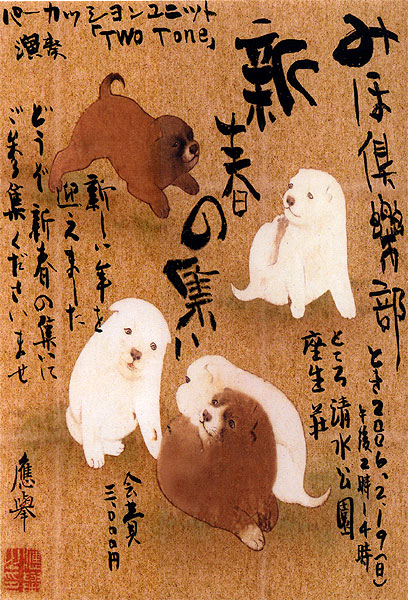 みほ倶樂部
新春の集い
とき2006.2.19(日)
午後2時〜4時
ところ清水公園
座生荘
パーカッションユニット
「TWO TONE」
演奏
新しい年を
迎えました
どうぞ新春の集いに
ご参集くださいませ
会費
三,000円
應舉